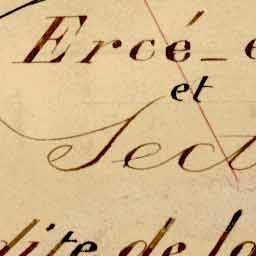 Ercé_e
et
Sect
dite de la